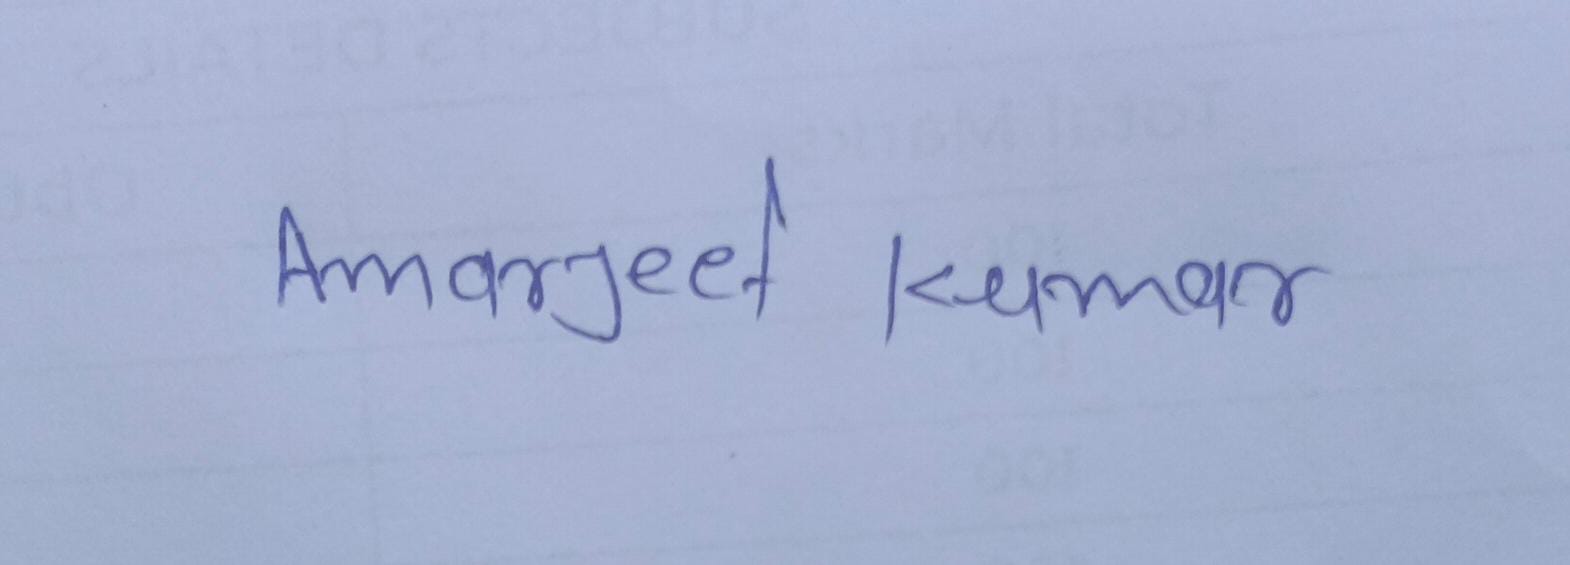 Amarjeet Kumar